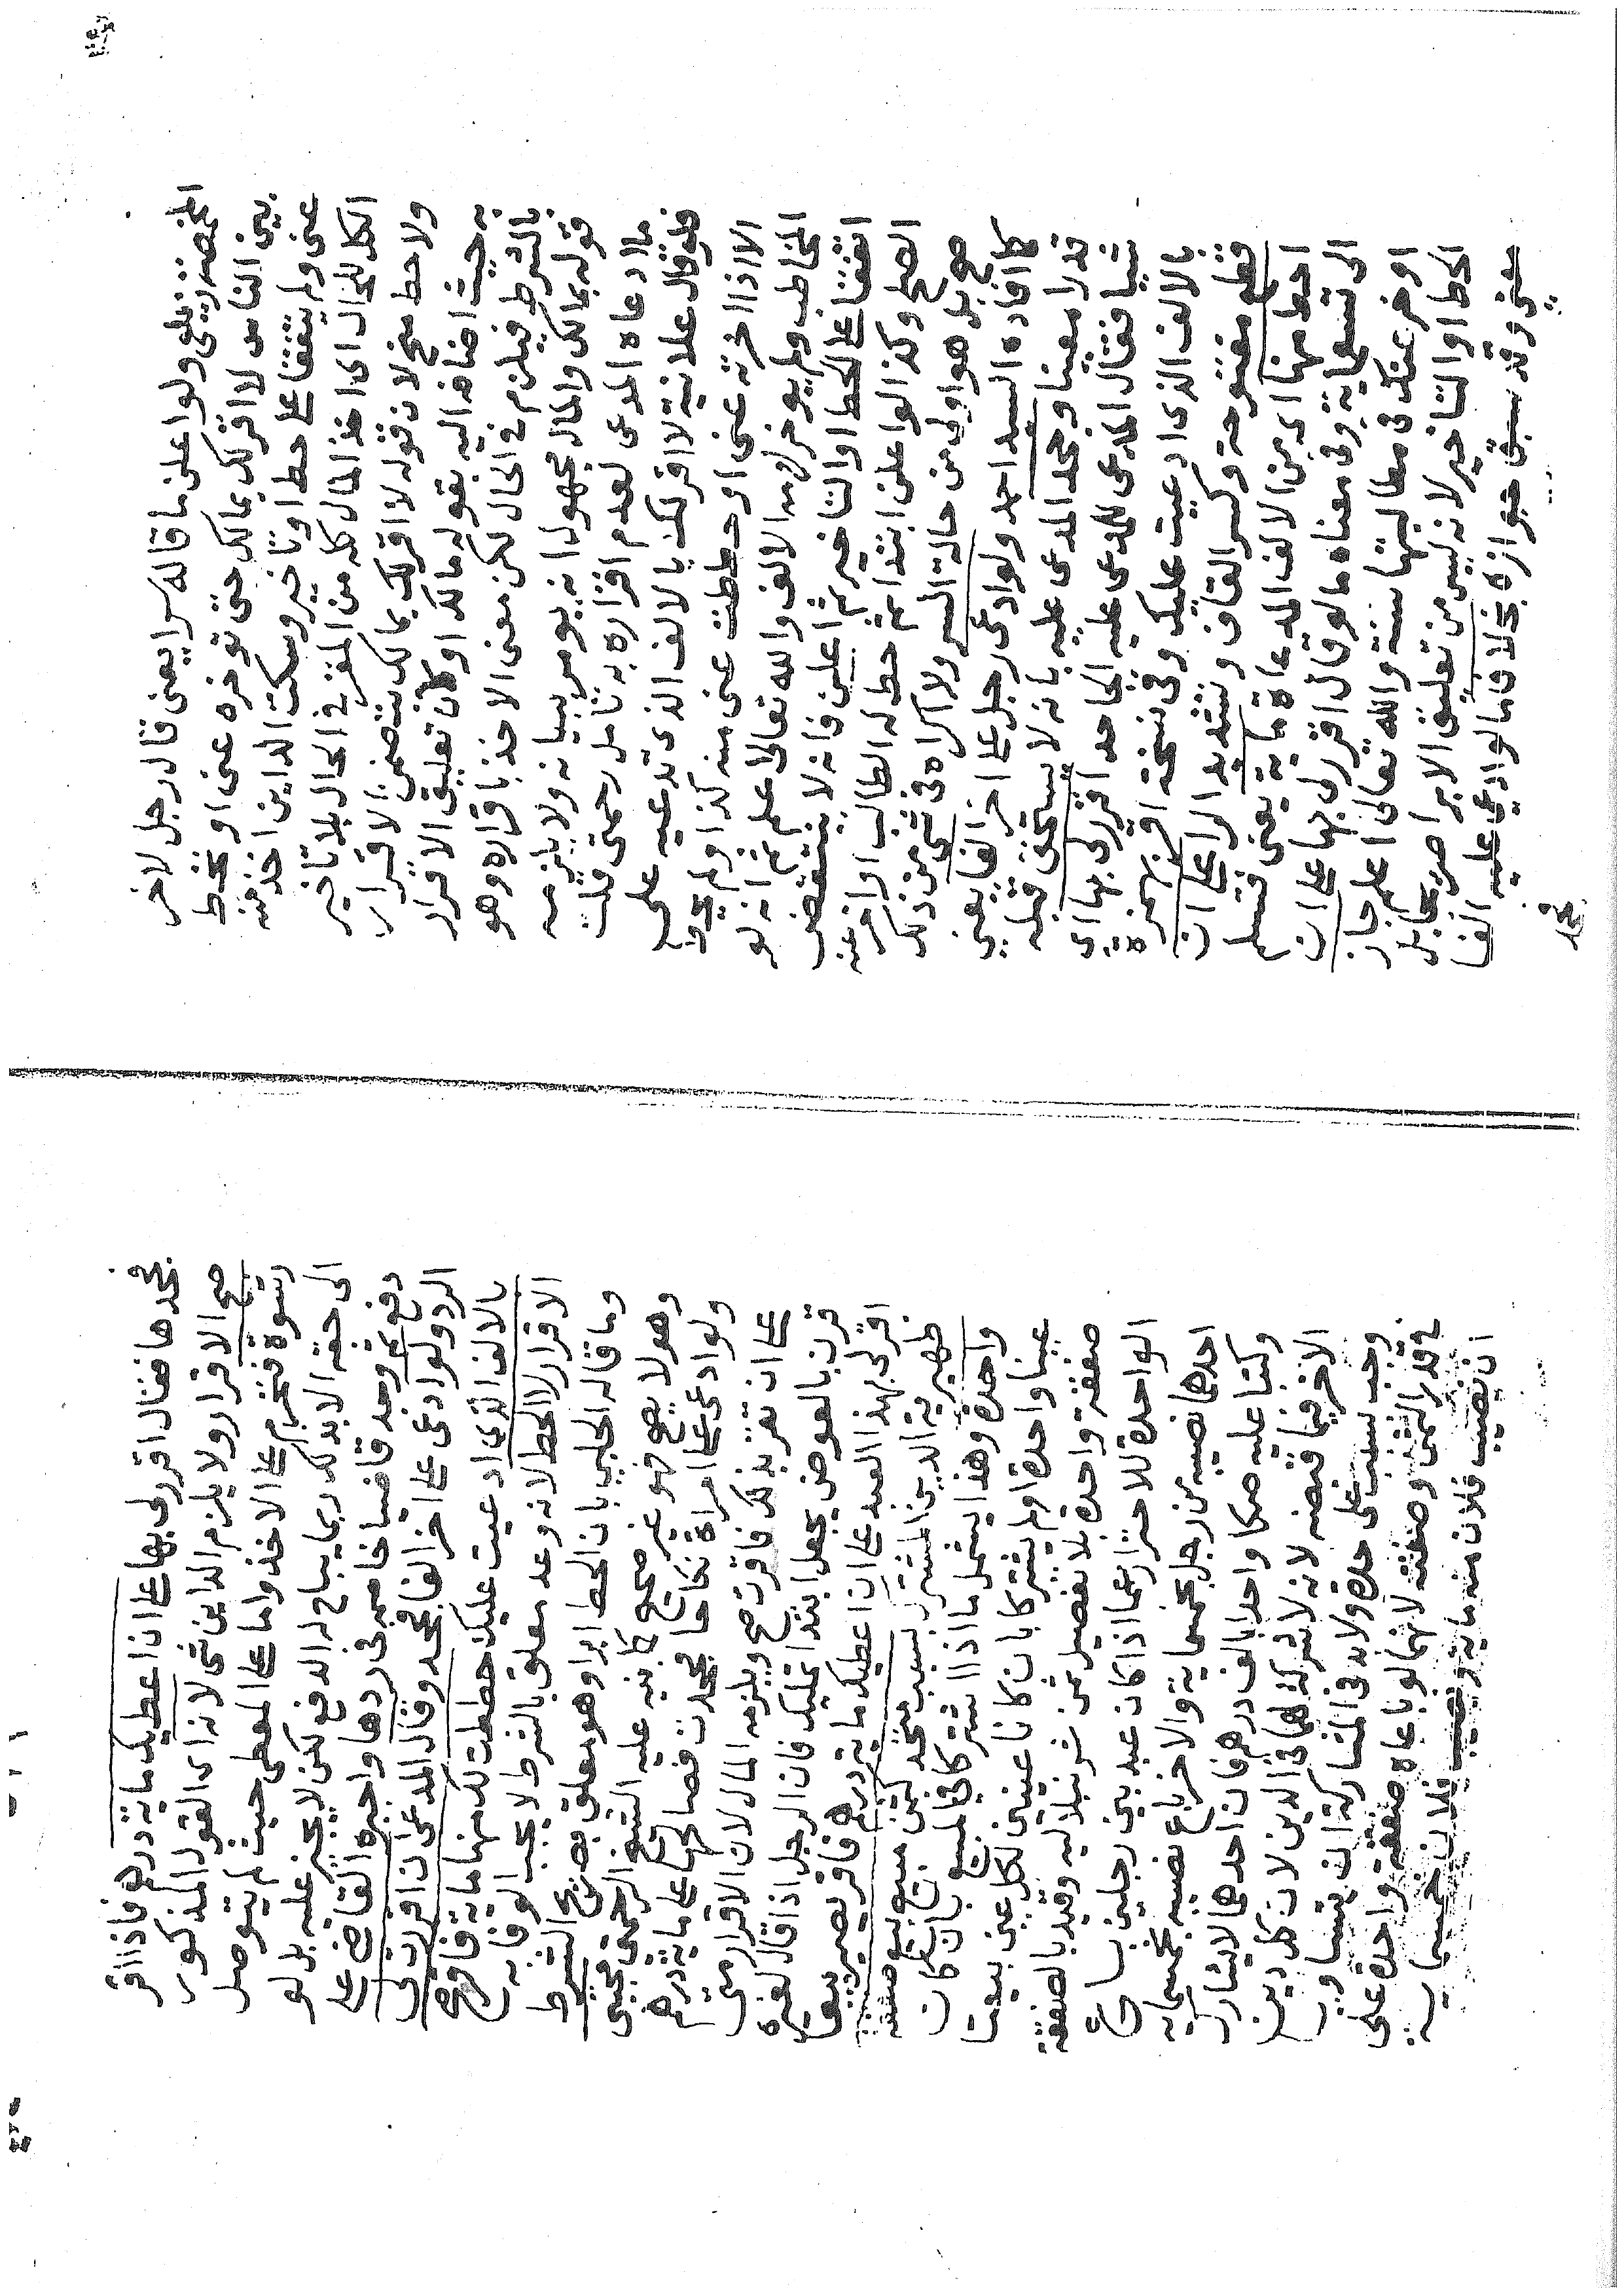 المختصر زيلعي ولو اعلن ما قاله سرا يعني قال رجل لاخر
بين الناس لا اقر لك بمالك حتى توخره عني او تحط
عني ولم يتفقا على حط او تاخير وسكت الداين اخذ منه
الكل للحال اي اخذ المال كله من المقر في الحال بلا تاخير
ولا حط منح لان قوله لا اقر لك بمالك يتضمن الاقرار
به حيث اضافه اليه بقوله مالك او كان تعليق الاقرار
بالشرط فيلزم في الحال لكن معنى الاخذ باقراره وهو
قوله بمالك والمال مجهول انه يومر ببيانه ولا يلزمه
ما ادعاه المدعي لعدم اقراره به تامل رحمتي قلت
فلو قال علانية لا اقر لك بالالف الذي تدعيه علي
الا اذا اخرته عني او حططت عني منه كذا ولم يجب
المخاطب ولم يوخر لزمه الالف والله تعالى اعلم ثم انه لو
اتفقا على الحط او التاخير ثم اعلن فانه لا ينتقض
الصلح وكذا لو اعلن ابتدا ثم حط له الطالب او اخر عنه
صح بل هو اولى من حالة السر ولا اكراه في شي من ذلك
كما افاده السيد احمد ولو ادعى رجل على اخر الفا يعني
قدرا معينا وجحد المدعى عليه بانه لا يستحق قبله
شيا فقال المدعي للمدعى عليه الجاحد اقرر لي بها اي
بالالف الذي ادعيت عليك وفي نسخة اقر بهمزة
قطع مفتوحة وكسر القاف وتشديد الرا على ان
احط منها اي من الالف المدعاة ماية يعني فتسلم
الى تسعماية وفي معناه ما لو قال اقرر لي بها على ان
اوخر عنك في مطالبتها سنة والله تعالى اعلم جاز
الحط او التاخير لانه ليس من تعليق الابرا صريحا بل
ضمني وقد سبق جوازه بخلاف ما لو ادعي عليه الفا
فجحد
فجحدها فقال اقرر لي بها على ان اعطيك ماية درهم فاذا اقر
صح الاقرار ولا يلزم الداين شي لانه اي القول المذكور
رشوة فتحرم على الاخذ واما على المعطي حيث لم يتوصل
الى حقه الا بذلك ربما يباح له الدفع لكن لا يجبر عليه بل لو
دفع ثم وجد قاضيا خاصمه في ردها واجبره القاضي على
الرد ولو ادعى على اخر الفا فجحد وقال المدعي ان اقررت لي
بالالف الذي ادعيت عليك حططت لك منها ماية فاقر صح
الاقرار لا الحط لانه وعد معلق بالشرط لا يجب الوفا به
وما قاله الحلبي بان الحط ابرا وهو معلق بصريح الشرط
وهو لا يصح فهو غير صحيح كما نبه عليه الشيخ الرحمتي مجتبى
ولو ادعى على امراة نكاحا فجحدت فصالحها على ماية درهم
على ان تقر بذلك فاقرت صح ويلزمه المال لان الاقرار متى
قرن بالعوض يجعل ابتدا تمليك فان الرجل اذا قال لغيره
اقر لي بهذا العبد على ان اعطيك ماية درهم فاقر يصير بيعا
ظهيرية الدين المشترك بسبب متحد كثمن مبيع بيع صفقة
واحدة وهذا يشمل ما اذا اشتركا في المبيع بان كان
عينا واحدة او لم يشتركا بان كانا عينين لكل عين بيعت
صفقة واحدة بلا تفصيل ثمن شرنبلالية وقيد بالصفقة
الواحدة للاحتراز عما اذا كان عبد بين رجلين باع
احدهما نصيبه من رجل بخمسماية والاخر باع نصيبه بخمسماية
وكتبا عليه صكا واحدا بالف درهم فان احدهما لا يشارك
الاخر فيما قبضه لانه لا شركة لهما في الدين لان كل دين
وجب بسبب على حدة ولا بد في المشاركة ان يتساويا
في قدر الثمن وصفته لانهما لو باعاه صفقة واحدة على
ان نصيب فلان منه ماية ونصيب فلان خمسماية